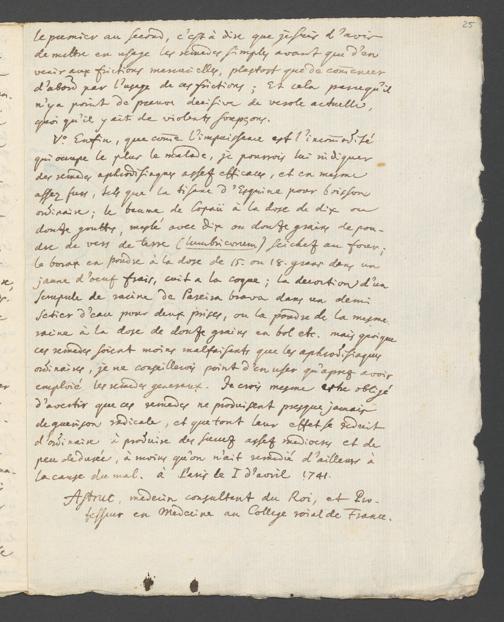 25
le premier au second, c'est à dire que je suis d'avis
de mettre en usage les remedes simples avant que d'en
venir aux frictions mercurielles, plustost que de comencer
d'abord par l'usage de ces frictions; Et cela parcequ'il
n'y a point de preuve decisive de verole actuelle,
quoi qu'il y ait de violents soupçons.
V.° Enfin, que come l'impuissance est l'incomodité
qui occupe le plus le malade, je pourrois lui indiquer
des remedes aphrodisiaques assez efficaces, et en mesme
assez seurs, tels que la tisane d'Esquine pour boisson
ordinaire; le baume de Copaü à la dose de dix ou
douze gouttes, meslé avec dix ou douze grains de pou-
dre de vers de terre (lumbricorum) seichez au four;
le borax en poudre à la dose de 15. ou 18. grans dans un
jaune d'oeuf frais, cuit a la coque; la decoction d'un
scrupule de racine de Pareira brava dans un demi
setier d'eau pour deux prises, ou la poudre de la mesme
racine à la dose de douze grains en bol etc. mais quoique
ces remedes soient moins malfaisants que les aphrodisiaques
ordinaires, je ne conseillerois point d'en user qu'apres avoir
emploié les remedes generaux. Je crois mesme estre obligé
d'avertir que ces remedes ne produisent presque jamais
de guerison radicale, et que tout leur effet se reduit
d'ordinaire à produire des succez assez mediocres et de
peu de durée, à moins qu'on n'ait remedié d'ailleurs à
la cause du mal. à Paris le I d'avril 1741.
Astruc, medecin consultant du Roi, et Pro-
fesseur en Medecine au College roial de France.